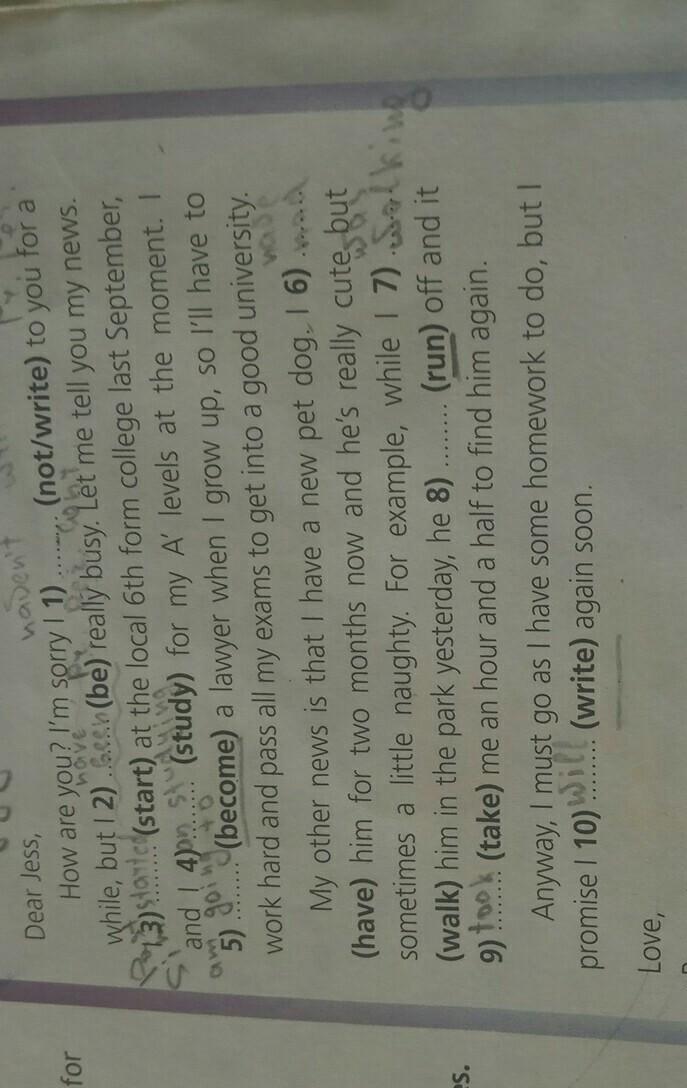 haven't
Dear Jess,
How are you? I'm sorry I 1) ........ (not/write) to you for a
have
while, but I 2) ........ been (be) really busy. Let me tell you my news.
I 3) started ........ (start) at the local 6th form college last September,
and I 4) am studying ........ (study) for my A' levels at the moment. I
am going to
5) ........ (become) a lawyer when I grow up, so I'll have to
work hard and pass all my exams to get into a good university.
have
My other news is that I have a new pet dog. I 6) had
(have) him for two months now and he's really cute, but
was
sometimes a little naughty. For example, while I 7) walking
(walk) him in the park yesterday, he 8) ........ (run) off and it
9) took ........ (take) me an hour and a half to find him again.
Anyway, I must go as I have some homework to do, but I
promise I 10) will ........ (write) again soon.
Love,
for
es.